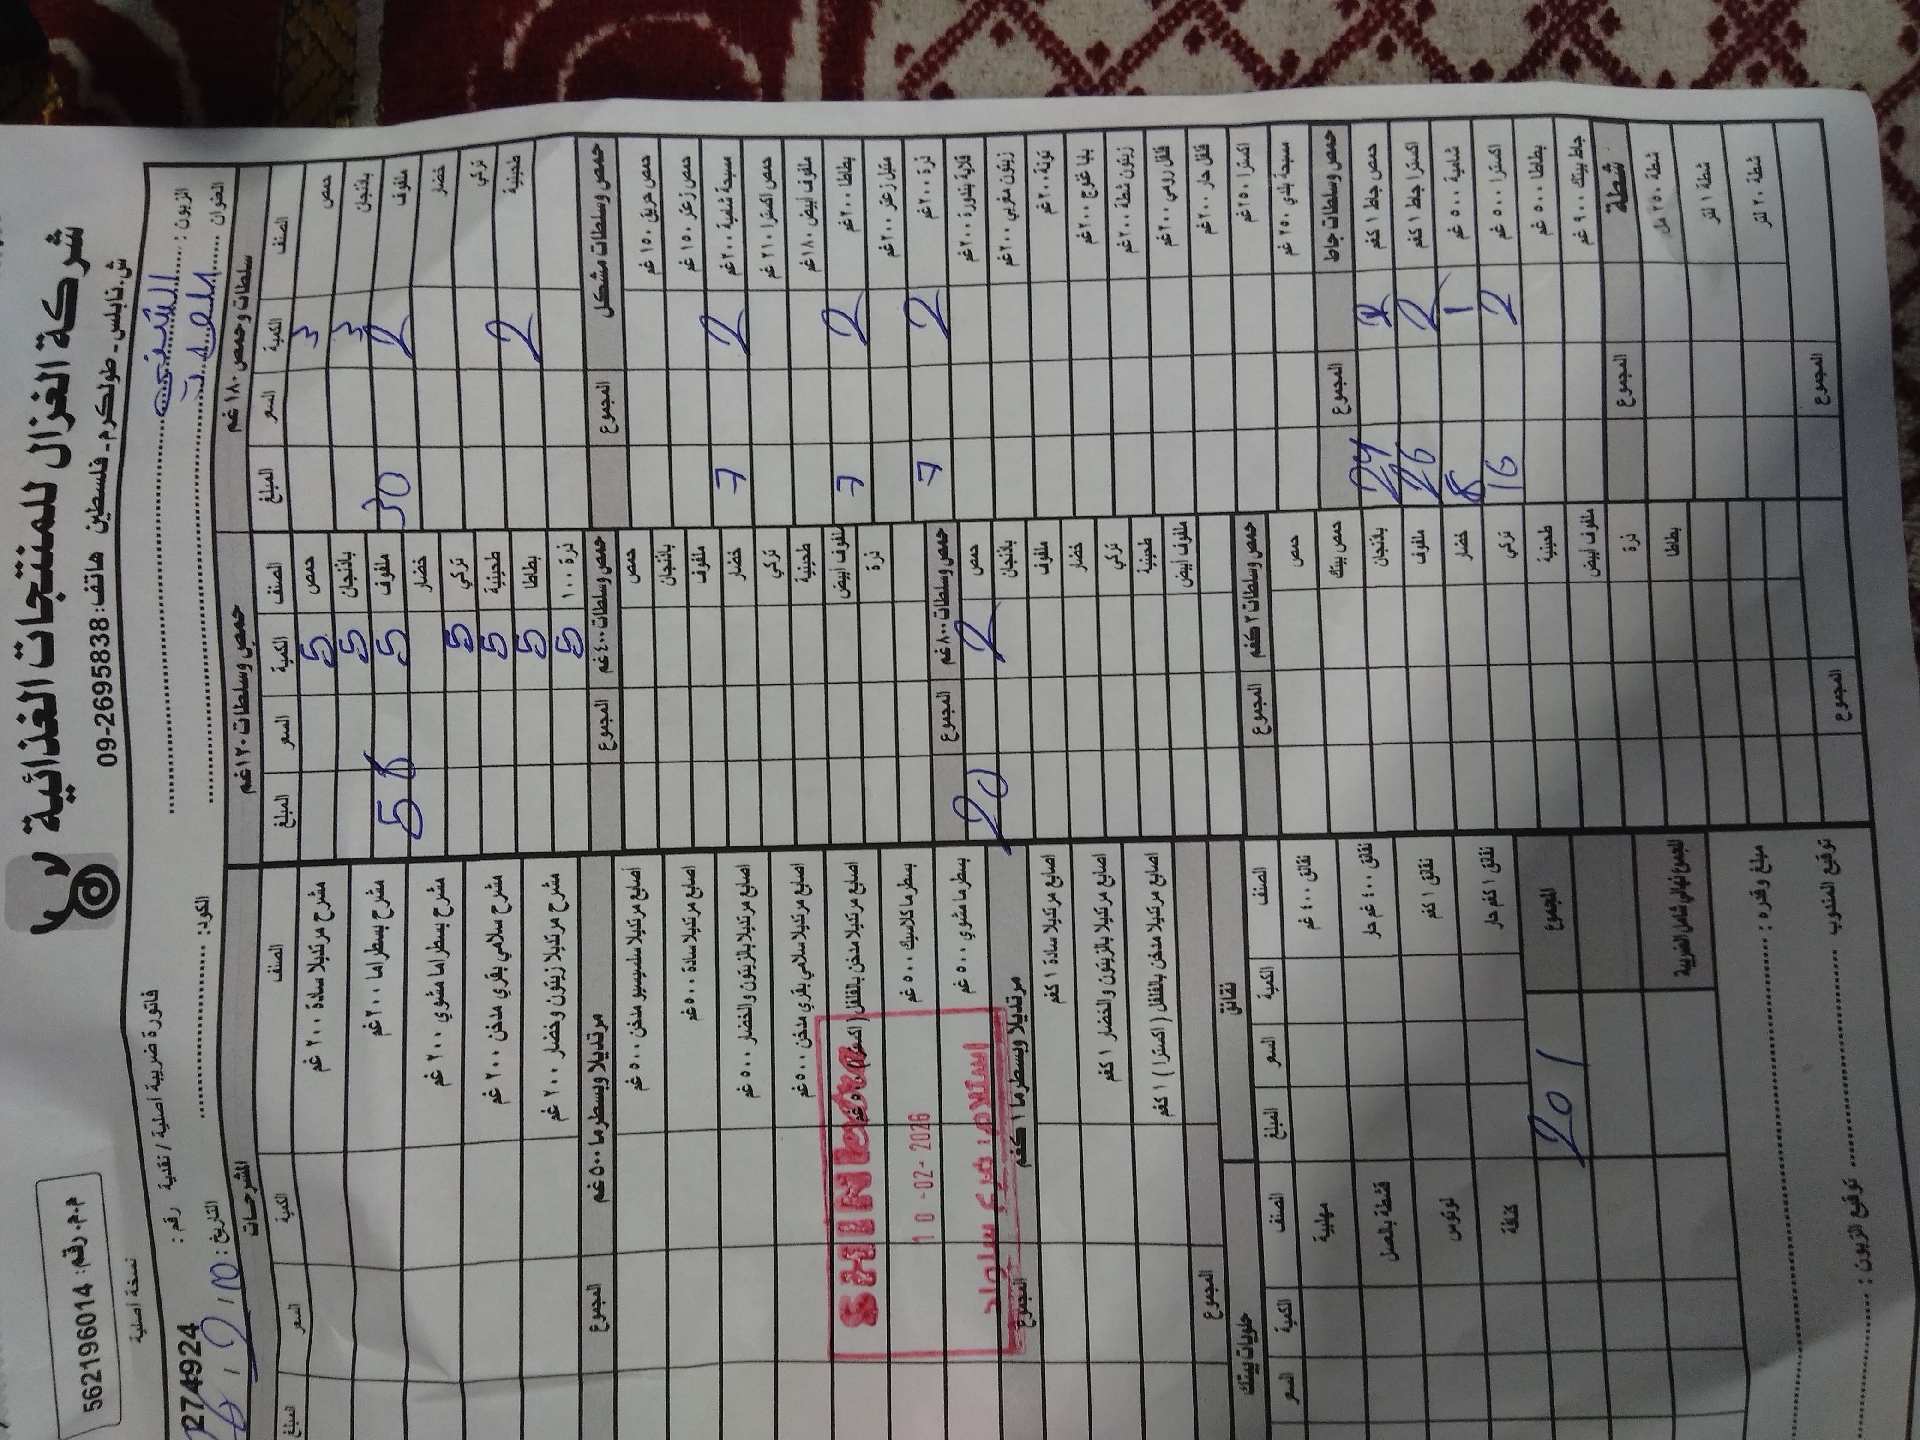 شركة الغزال للمنتجات الغذائية
ش. نابلس - طولكرم - فلسطين هاتف: 09-2695838
م.م. رقم: 562196014
نسخة أصلية
فاتورة ضريبية أصلية / نقدية رقم: 2274924
الزبون:
العنوان
الكود:
التاريخ: 10
سلطات وحمص ١٨٠ غم
الصنف الكمية السعر المبلغ
حمص 3
باذنجان 3
ملفوف 2 30
خضار
تركي
طحينية 2
حمص وسلطات مشكل المجموع
حمص حريق ١٥٠ غم
حمص زعتر ١٥٠ غم
مسبحة شامية ٢٠٠ غم 2 7
حمص اكسترا ٢١٠ غم
ملفوف ابيض ١٨٠ غم
بطاطا ٢٠٠ غم 2 7
متبل زعتر ٢٠٠ غم
ذرة ٢٠٠ غم 2 7
قلاية بندورة ٢٠٠ غم
زيتون مغربي ٢٠٠ غم
تونة ٢٠٠ غم
بابا غنوج ٢٠٠ غم
زيتون شطة ٢٠٠ غم
فلفل رومي ٢٠٠ غم
فلفل حار ٢٠٠ غم
اكسترا ٢٥٠ غم
مسبحة بلدي ٢٥٠ غم
حمص وسلطات جاط المجموع
حمص جاط ١ كغم 2 24
اكسترا جاط ١ كغم 2 26
شامية ٥٠٠ غم 1 8
اكسترا ٥٠٠ غم 2 16
بطاطا ٥٠٠ غم
جاط بيتك ٩٠٠ غم
شطة المجموع
شطة ٢٥٠ مل
شطة ١ لتر
شطة ٢٠ لتر
المجموع
حمص وسلطات ١٢٠ غم
الصنف الكمية السعر المبلغ
حمص 5
باذنجان 5
ملفوف 5 58
خضار
تركي 5
طحينية 5
بطاطا 5
ذرة ١٠٠ 5
حمص وسلطات ٤٠٠ غم المجموع
حمص
باذنجان
ملفوف
خضار
تركي
طحينية
ملفوف ابيض
ذرة
حمص وسلطات ٨٠٠ غم المجموع
حمص 2 20
باذنجان
ملفوف
خضار
تركي
طحينية
ملفوف ابيض
حمص وسلطات ٣ كغم المجموع
حمص
حمص بيتك
باذنجان
ملفوف
خضار
تركي
طحينية
ملفوف ابيض
ذرة
بطاطا
المجموع
المشرحات
الصنف الكمية السعر المبلغ
مشرح مرتديلا سادة ٢٠٠ غم
مشرح بسطراما ٢٠٠ غم
مشرح بسطراما مشوي ٢٠٠ غم
مشرح سلامي بقري مدخن ٢٠٠ غم
مشرح مرتديلا زيتون وخضار ٢٠٠ غم
مرتديلا وبسطرما ٥٠٠ غم المجموع
أصابع مرتديلا سلسيسيو مدخن ٥٠٠ غم
اصابع مرتديلا سادة ٥٠٠ غم
اصابع مرتديلا بالزيتون والخضار ٥٠٠ غم
اصابع مرتديلا سلامي بقري مدخن ٥٠٠ غم
اصابع مرتديلا مدخن بالفلفل
بسطرما كلاسيك ٥٠٠ غم
بسطرما مشوي ٥٠٠ غم
مرتديلا وبسطرما ١ كغم المجموع
اصابع مرتديلا سادة ١ كغم
اصابع مرتديلا بالزيتون والخضار ١ كغم
اصابع مرتديلا مدخن بالفلفل ( اكسترا ) ١ كغم
المجموع
SHINer
10 -02- 2026
استلام: فرع سلواد
نقانق
الصنف الكمية السعر المبلغ
نقانق ٤٠٠ غم
نقانق ٤٠٠ غم حار
نقانق ١ كغم
نقانق ١ كغم حار
المجموع 201
المجموع نهائي شامل الضريبة
حلويات بيتك
الصنف الكمية السعر
مهلبية
قشطة بالعسل
لوتوس
كنافة
مبلغ وقدره:
توقيع المندوب
توقيع الزبون: